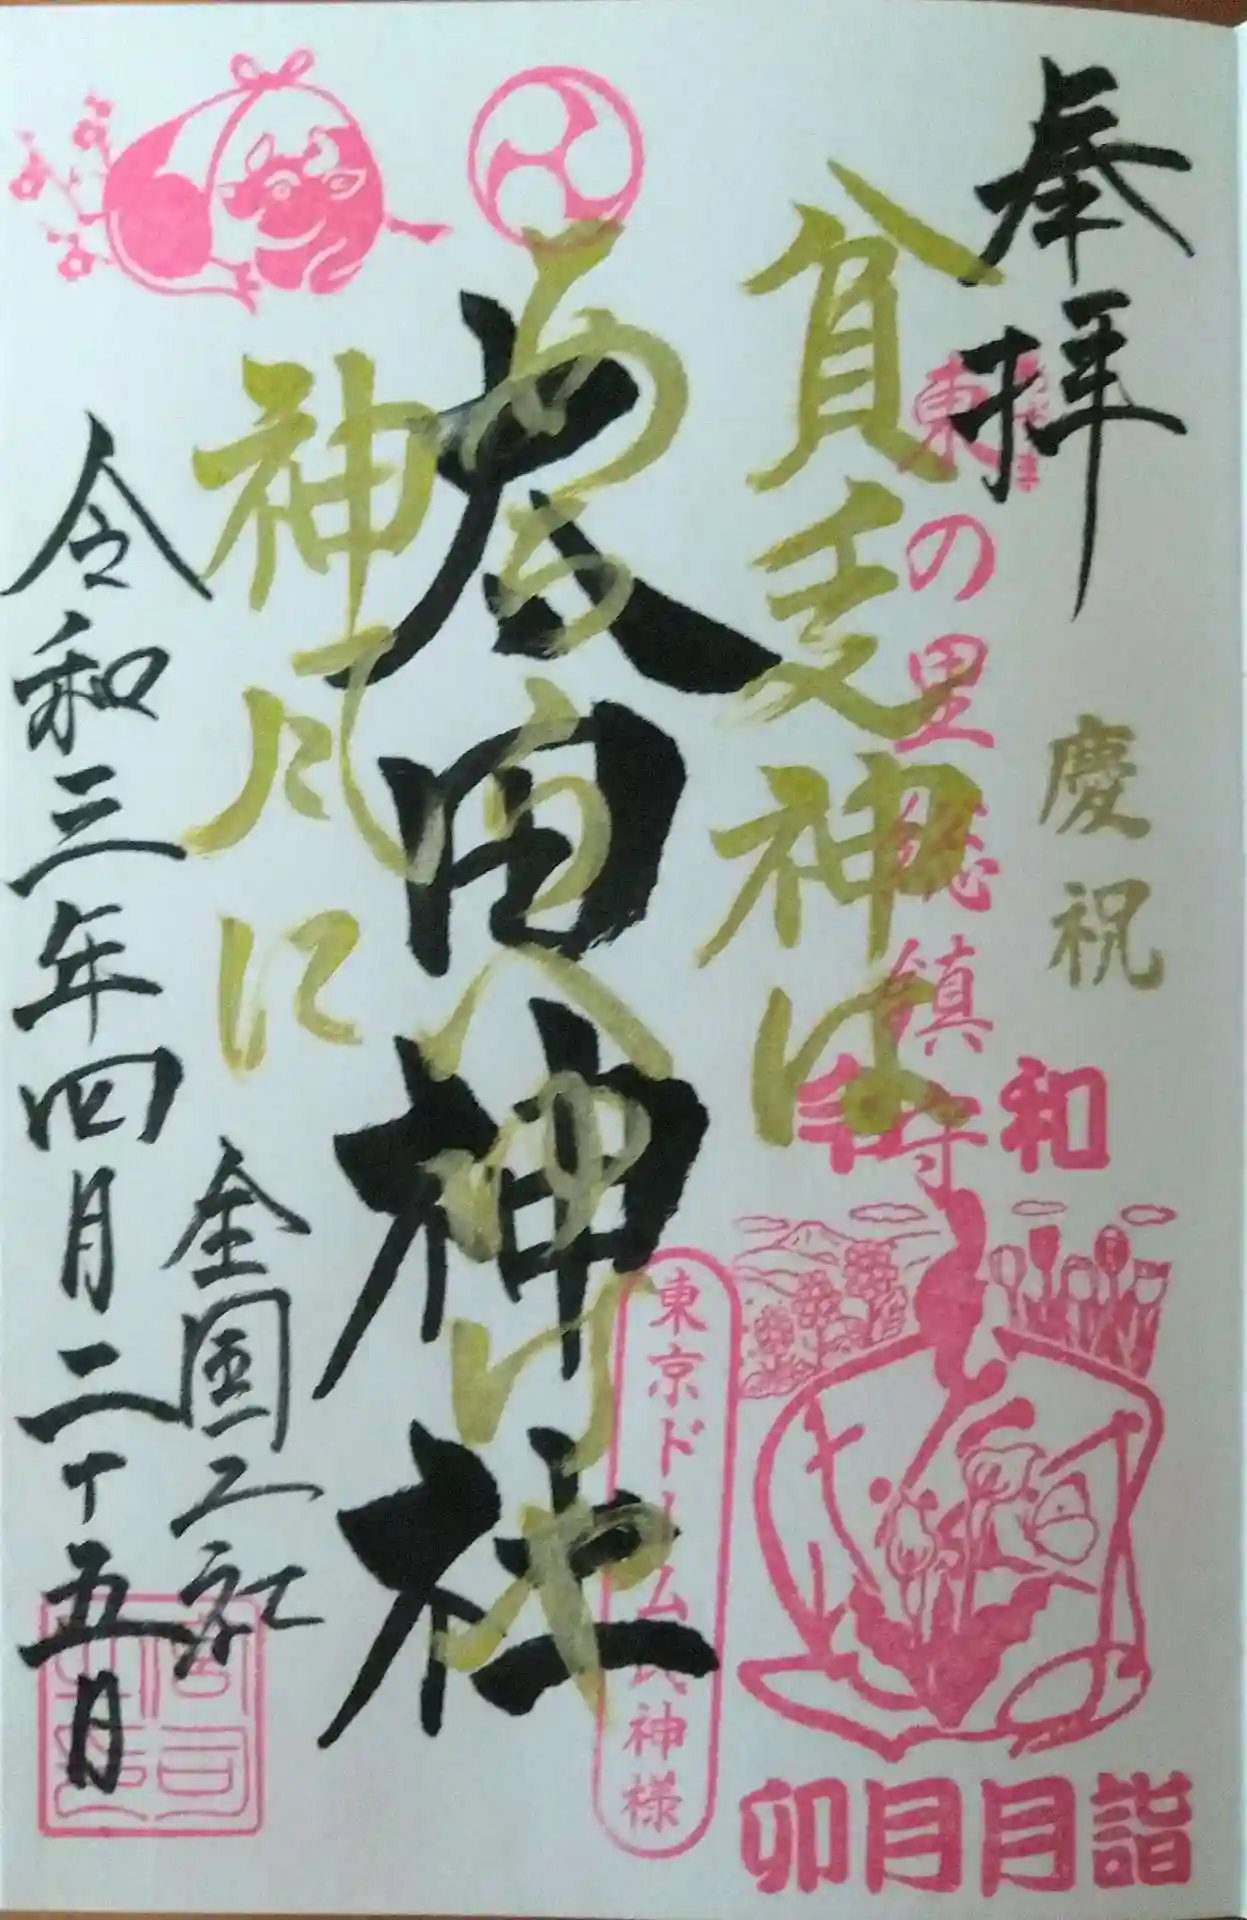 奉拝
慶祝
東の里総鎮守
令和
卯月月詣
貧乏神は
へゆけや
神風に
太田神社
東京ドーム氏神様
全国二社
令和三年四月二十五日